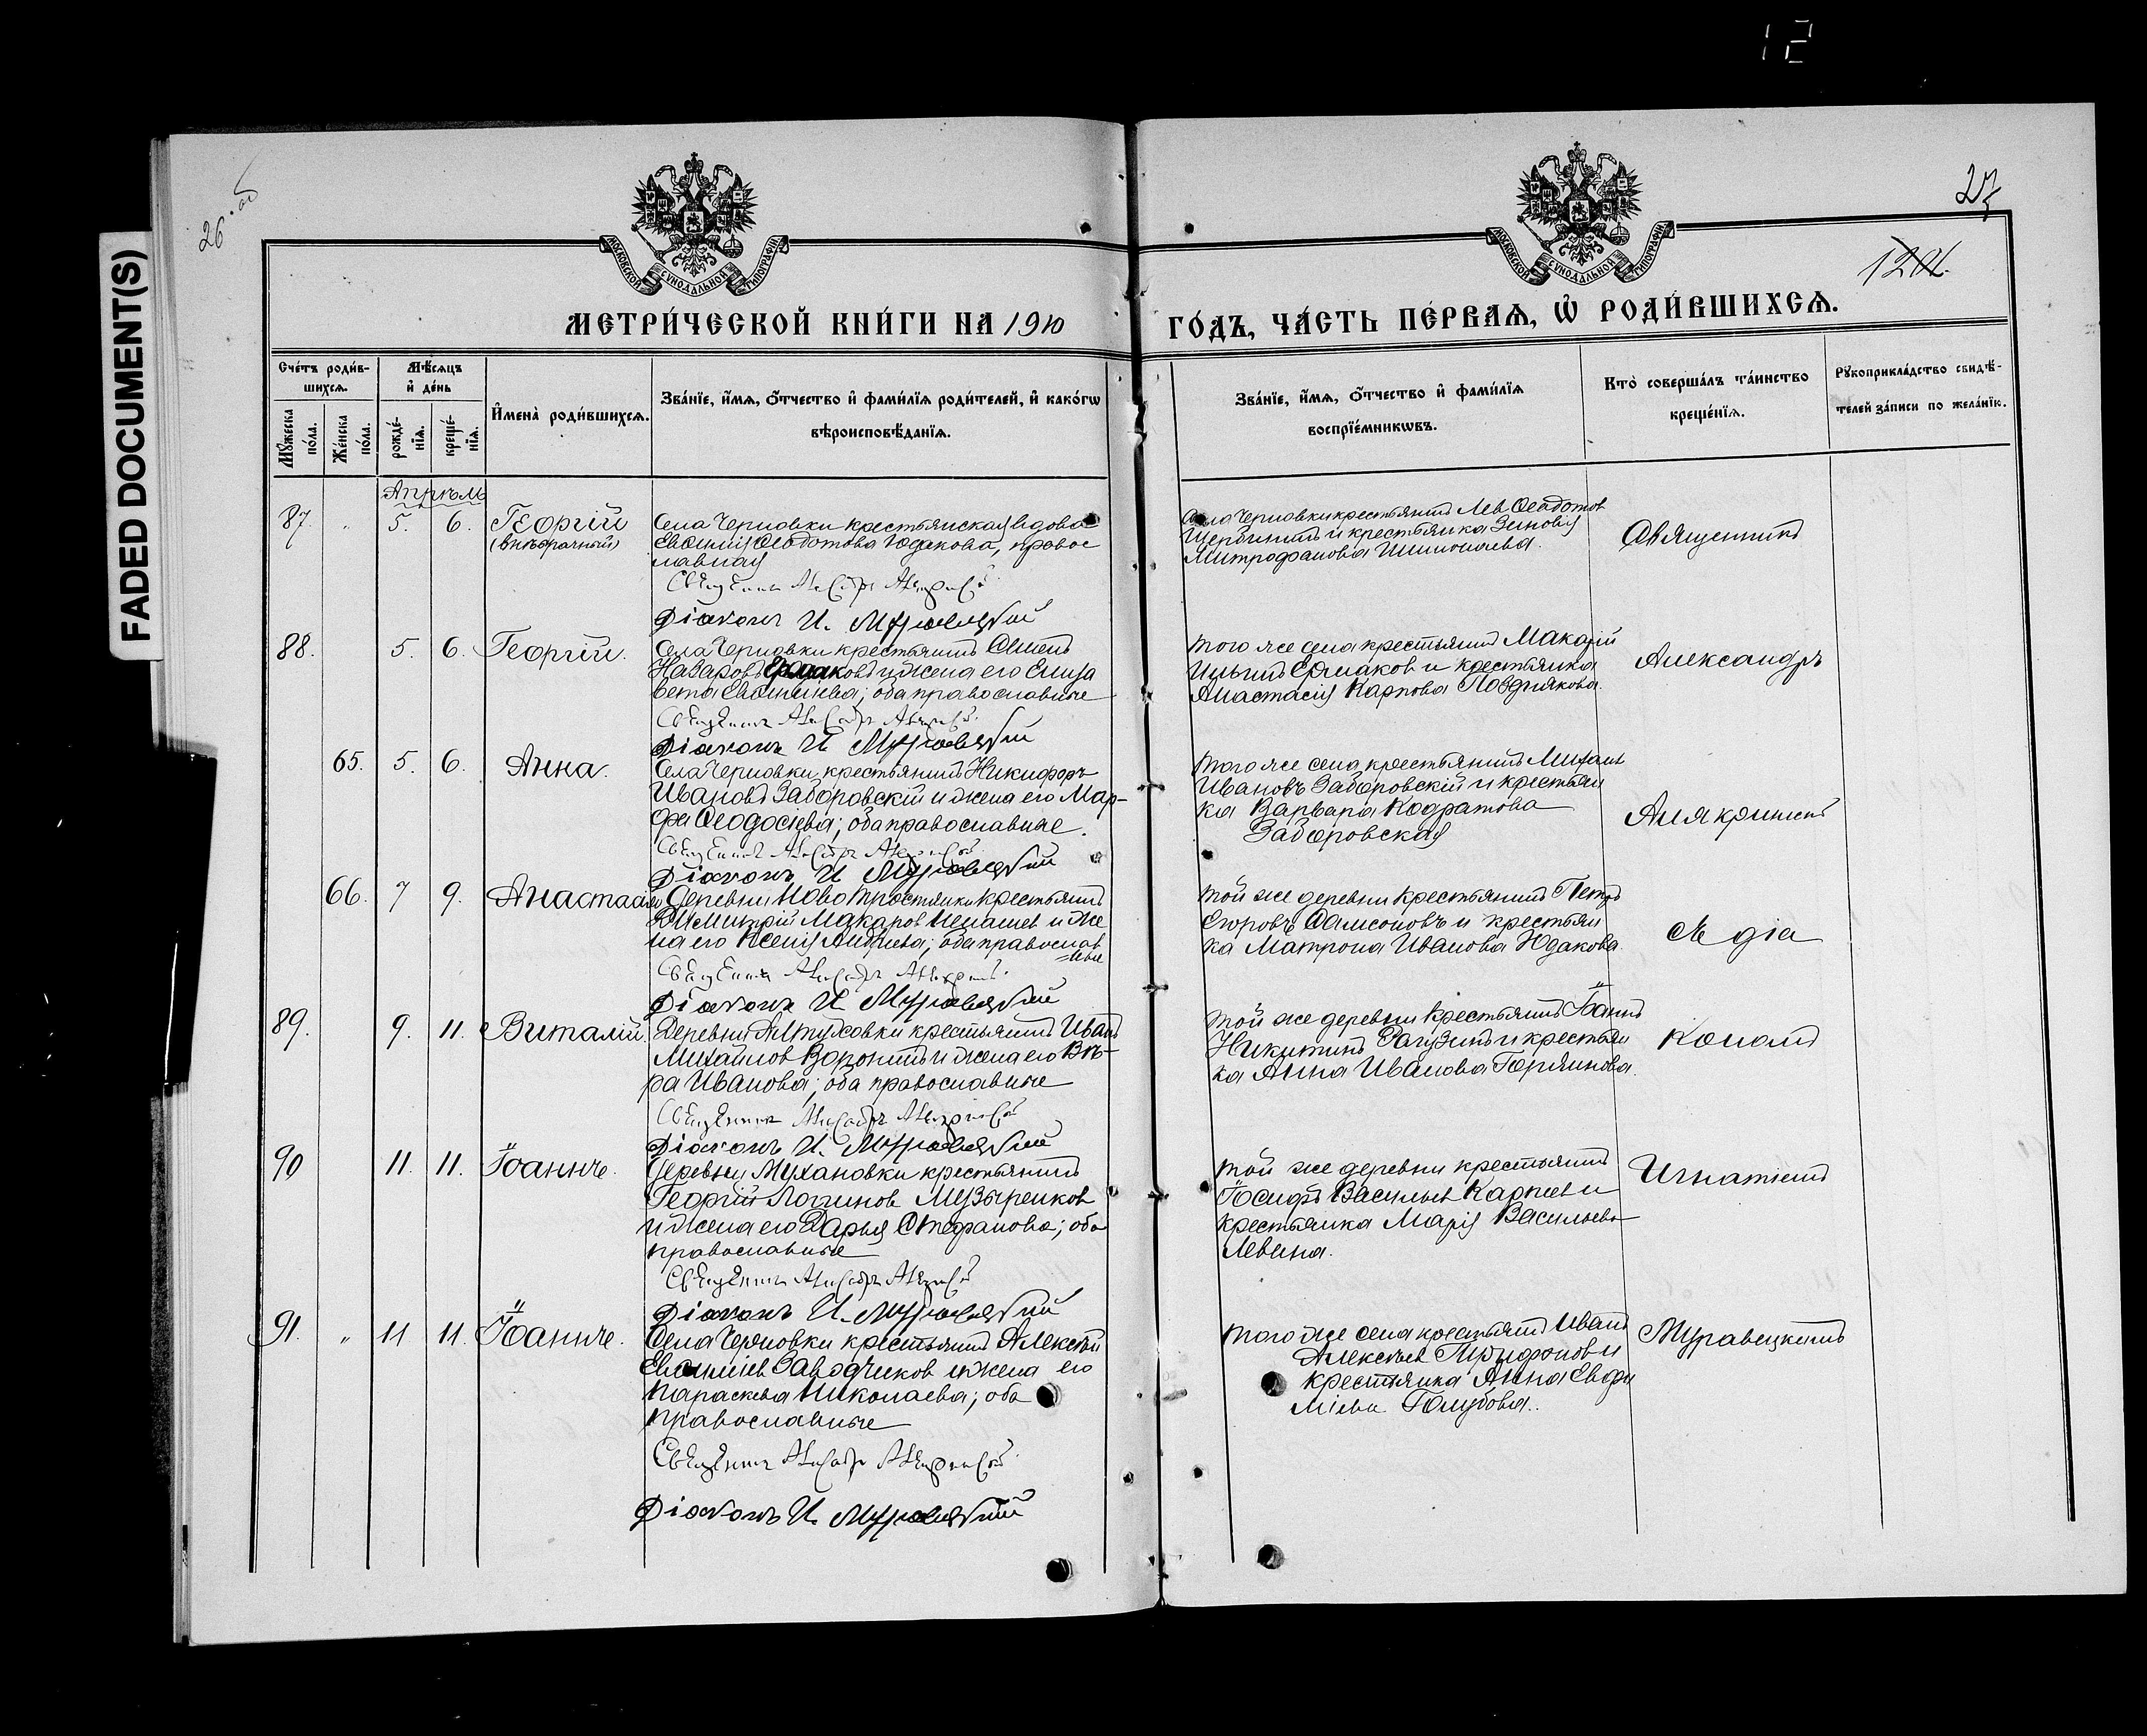 12
FADED DOCUMENT(S)
26 об
27
МОСКОВСКОЙ СУНОДАЛЬНОЙ ТИПОГРАФІИ
МОСКОВСКОЙ СУНОДАЛЬНОЙ ТИПОГРАФІИ
МЕТРИ́ЧЕСКОЙ КНИ́ГИ НА 1910
ГО́ДЪ, ЧА́СТЬ ПЕ́РВАѦ, Ѡ҆ РОДИ́ВШИХСѦ.
Сче́тъ роди́в-
шихсѧ.
Мѣ́сѧцъ
и҆ де́нь
Мꙋ́жеска по́ла.
Же́нска по́ла.
рожде́-
нїѧ.
креще́-
нїѧ.
И҆мена̀ роди́вшихсѧ.
Зва́нїе, и҆́мѧ, ѻ҆́тчество и҆ фами́лїѧ роди́телей, и҆ како́гѡ
вѣроисповѣ́данїѧ.
Зва́нїе, и҆́мѧ, ѻ҆́тчество и҆ фами́лїѧ
воспрїе́мникѡвъ.
Кто̀ соверша́лъ та́инство
креще́нїѧ.
Рꙋкоприкла́дство свидѣ́-
телей за́писи по жела́нїю.
Апрѣль
87. " 5. 6. Георгій
(внѣбрачный)
Села Черновки крестьянская вдова
Евфимія Ѳеодотова Юдакова, правос
лавная
Священникъ Александръ
Діаконъ И. Муравецкій
Села Черновки крестьянинъ Лев Ѳеодотов
Щербининъ и крестьянка Зиновія
Митрофанова
Священникъ
88. 5. 6. Георгій.
Села Черновки крестьянинъ
Назаровъ Ермаковъ и жена его Елиза
вета; оба православные
Священникъ Александръ
Діаконъ И Муравецкій
того же села крестьянинъ Макарій
Ильинъ Ермаков и крестьянка
Анастасія Карпова Позднякова.
Александръ
65. 5. 6. Анна.
Села Черновки крестьянинъ Никифоръ
Ивановъ Заборовскій и жена его Мар-
фа Ѳеодосіева; оба православные.
Священникъ Александръ
Діаконъ И Муравецкій
того же села крестьянинъ Михаил
Ивановъ Заборовскій и крестьян
ка Варвара Кодратова
Заборовская
Алякринскій
66. 7 9. Анастасія
Деревни Ново Тростянки крестьянинъ
Димитрій Макаров и же
на его Ксенія Андреева; оба православ
=ные
Священникъ Александръ
Діаконъ И Муравецкій
той же деревни крестьянинъ Петръ
Егоровъ Самсоновъ и крестьян
ка Матрона Иванова Юдакова.
съ діа
89. 9. 11. Виталій.
Деревни крестьянинъ Иванъ
Михайлов Воронинъ и жена его Вѣ-
ра Иванова; оба православные
Священникъ Александръ
Діаконъ И. Муравецкій
той же деревни крестьянинъ Іоаннъ
Никитинъ и крестьян
ка Анна Иванова Горяинова.
кономъ
90 11. 11. Іоаннъ.
Деревни Мухановки крестьянинъ
Георгій Логгинов Музыренков
и жена его Дарья Стефанова; оба
православные
Священникъ Александръ
Діаконъ И. Муравецкій
той же деревни крестьянинъ
Іосифъ Васильев Карпеев и
крестьянка Марія Васильева
Левина.
Игнатіемъ
91. " 11 11. Іоаннъ.
Села Черновки крестьянинъ Алексѣй
Евфиміев Заводчиков и жена его
Параскева Николаева; оба
православные
Священникъ Александръ
Діаконъ И. Муравецкій
того же села крестьянинъ Иванъ
Алексѣев Трифонов и
крестьянка Анна Евфи
міева Голубова.
Муравецкимъ